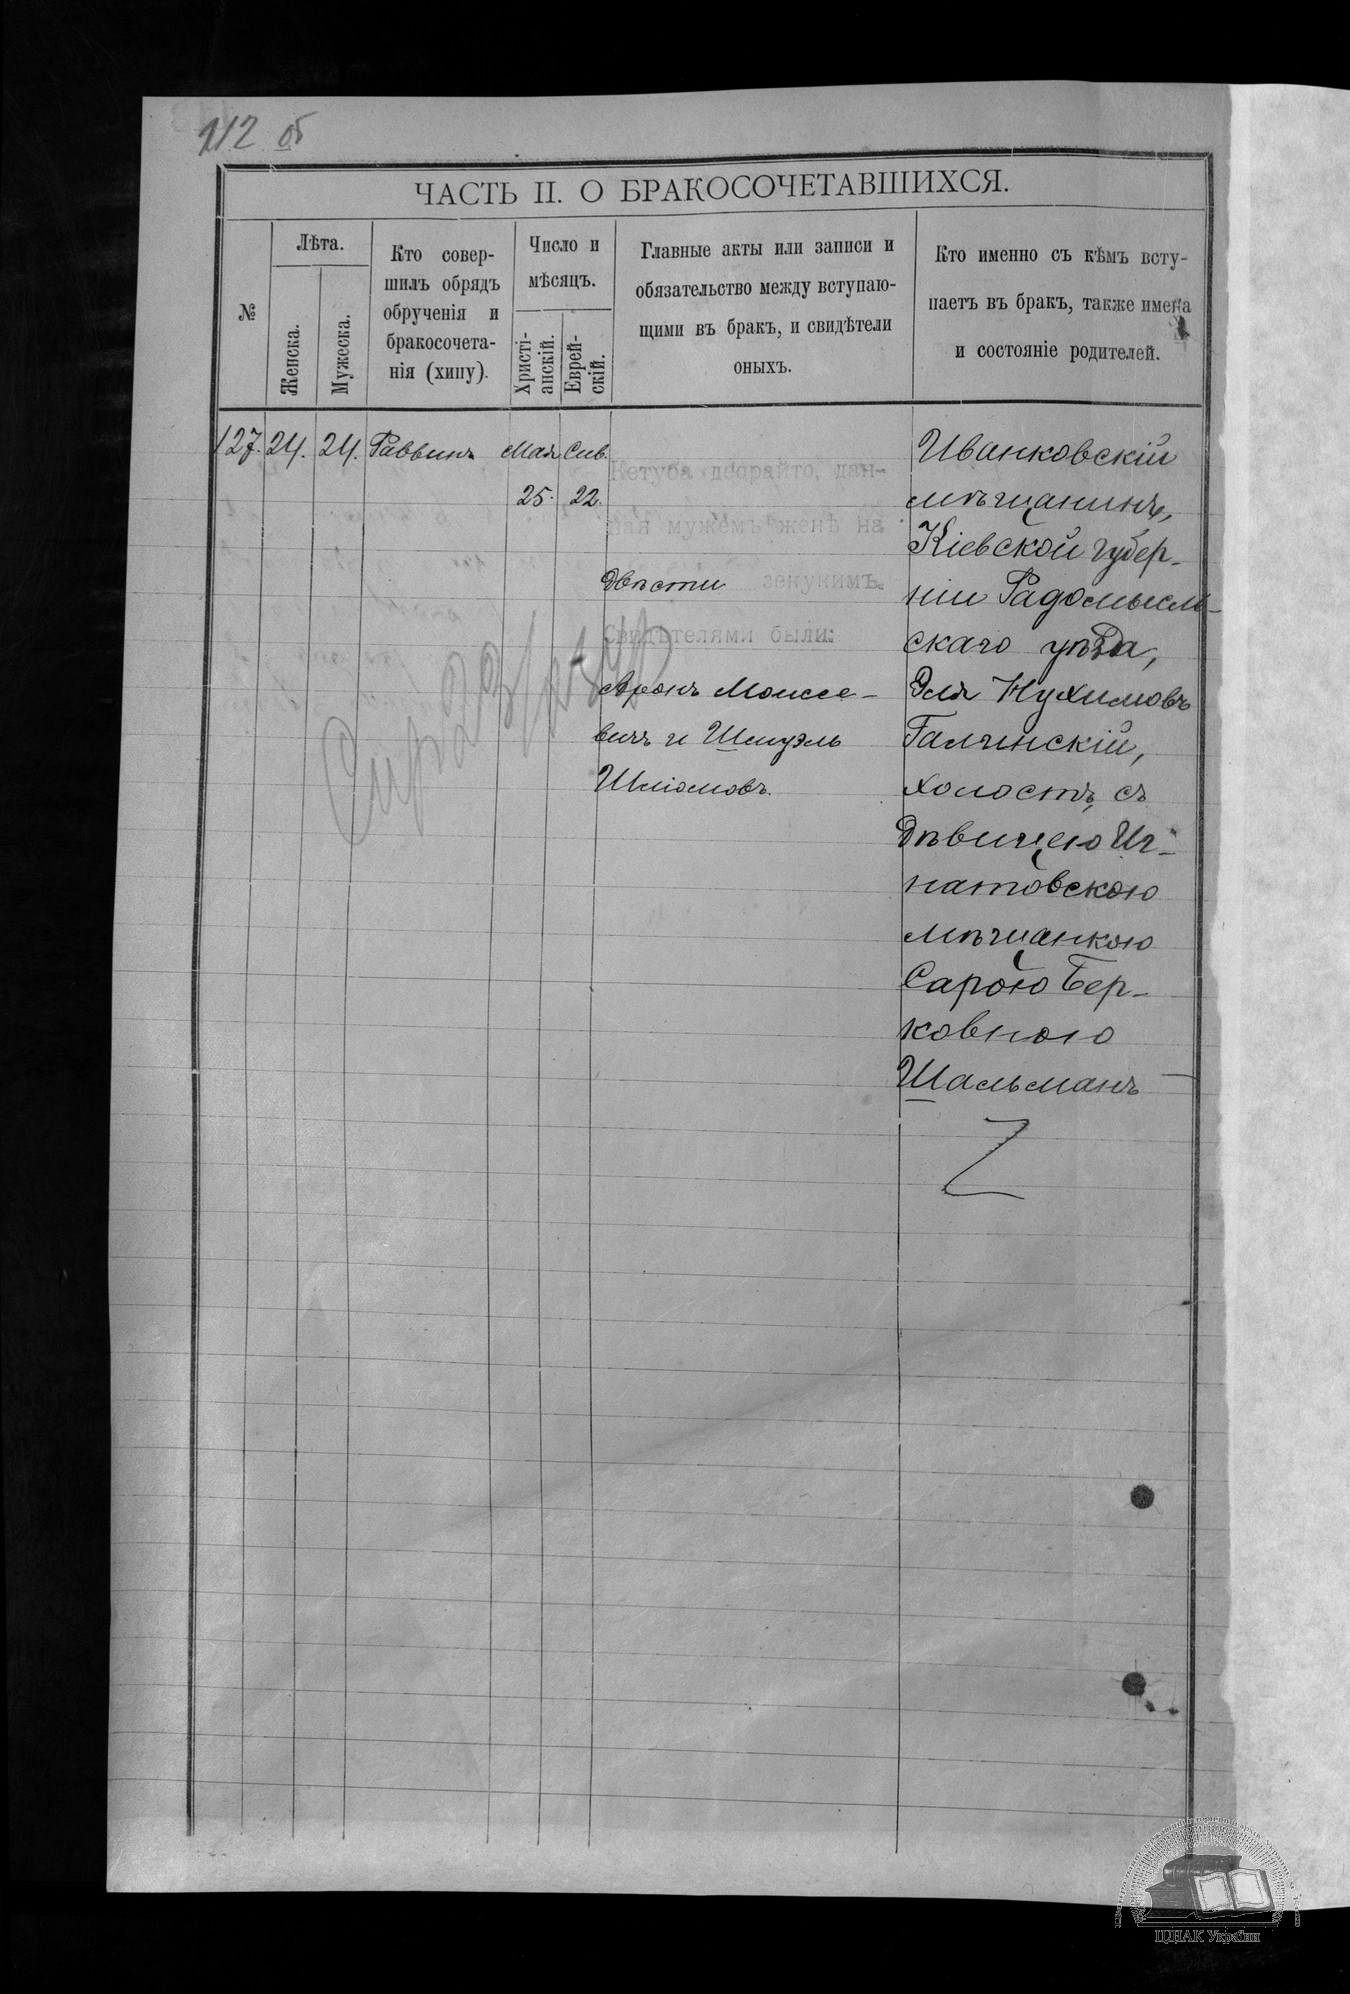 212 об
ЧАСТЬ II. О БРАКОСОЧЕТАВШИХСЯ.
№
Лѣта.
Женска.
Мужеска.
Кто совер-
шилъ обрядъ
обрученія и
бракосочета-
нія (хипу).
Число и
мѣсяцъ.
Христі-
анскій.
Еврей-
скій.
Главные акты или записи и
обязательство между вступаю-
щими въ бракъ, и свидѣтели
оныхъ.
Кто именно съ кѣмъ всту-
паетъ въ бракъ, также имена
и состояніе родителей.
127. 24. 24. Раввинъ Мая Сив.
25. 22.
Кетуба деорайто, дан-
ная мужемъ женѣ на
двѣсти зекукимъ.
Свидѣтелями были:
Аронъ Моисее-
вичъ и Шмуэль
Шліомовъ.
Иванковскій
мѣщанинъ,
Кіевской губер-
ніи Радомысль-
скаго уѣзда,
Эля Нухимовъ
Галчинскій,
холостъ, съ
дѣвицею Иг-
натовскою
мѣщанкою
Сарою Бер-
ковною
Шальманъ
ЦДІАК України